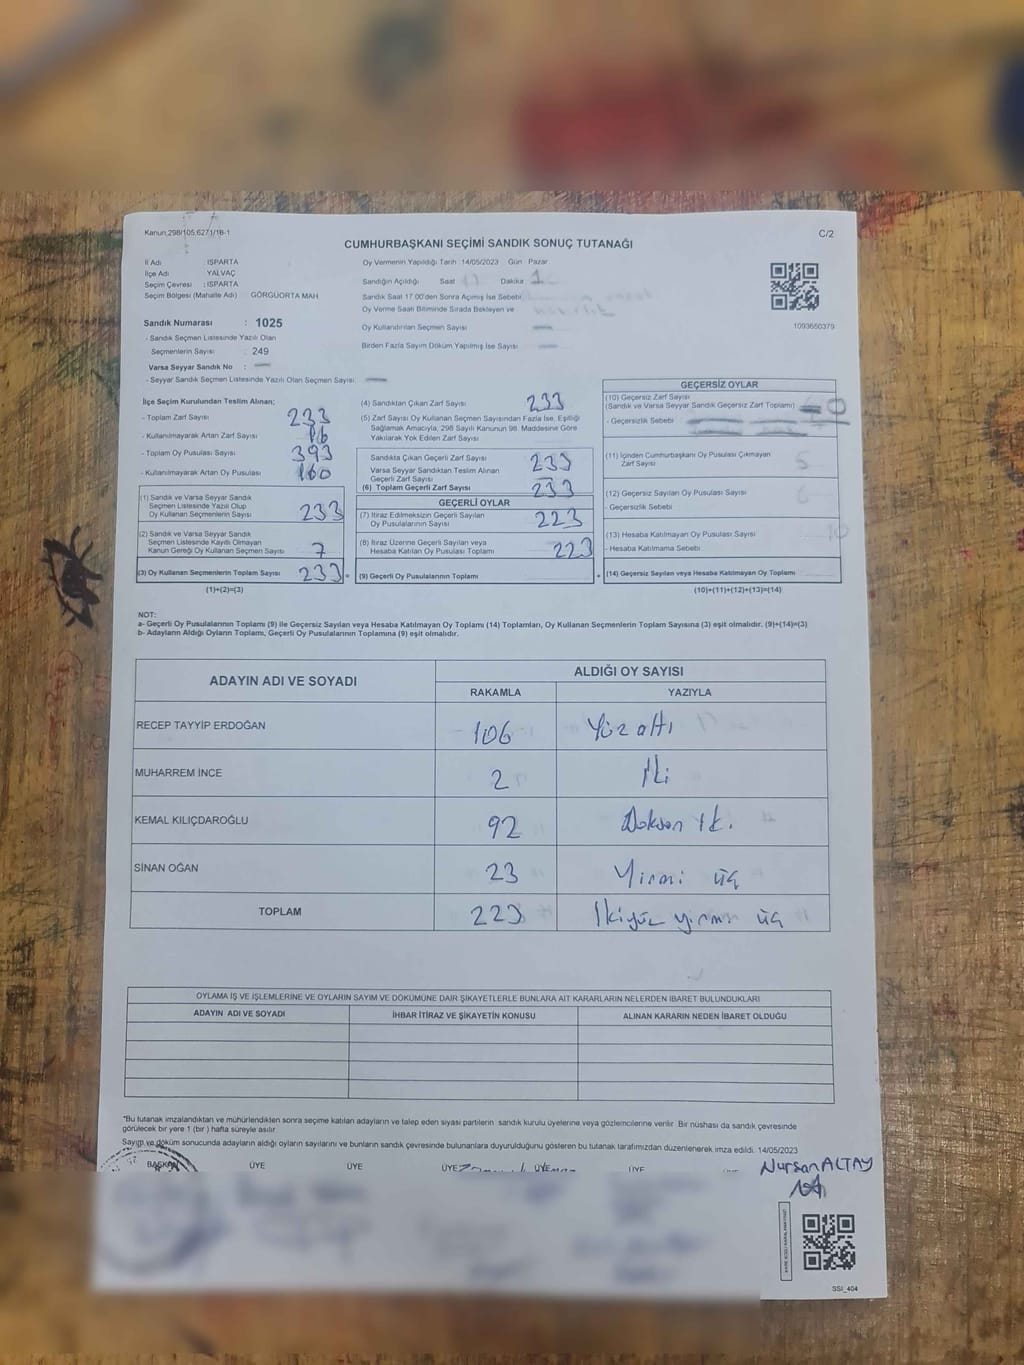 Kanun,298/105,6271/18-1
C/2
CUMHURBAŞKANI SEÇİMİ SANDIK SONUÇ TUTANAĞI
İl Adı : ISPARTA
İlçe Adı YALVAÇ
Seçim Çevresi : ISPARTA
Seçim Bölgesi (Mahalle Adı) GÖRGÜORTA MAH
Sandık Numarası : 1025
- Sandık Seçmen Listesinde Yazılı Olan
Seçmenlerin Sayısı : 249
Varsa Seyyar Sandık No :
- Seyyar Sandık Seçmen Listesinde Yazılı Olan Seçmen Sayısı
Oy Vermenin Yapıldığı Tarih :14/05/2023 Gün Pazar
Sandığın Açıldığı Saat Dakika 1
Sandık Saat 17.00'den Sonra Açımış İse Sebebi
Oy Verme Saati Bitiminde Sırada Bekleyen ve
Oy Kullandırılan Seçmen Sayısı
Birden Fazla Sayım Döküm Yapılmış İse Sayısı
1093650379
İlçe Seçim Kurulundan Teslim Alınan;
- Toplam Zarf Sayısı 233
- Kullanılmayarak Artan Zarf Sayısı 16
- Toplam Oy Pusulası Sayısı 393
- Kullanılmayarak Artan Oy Pusulası 160
(1) Sandık ve Varsa Seyyar Sandık
Seçmen Listesinde Yazılı Olup
Oy Kullanan Seçmenlerin Sayısı 233
(2) Sandık ve Varsa Seyyar Sandık
Seçmen Listesinde Kayıtlı Olmayan
Kanun Gereği Oy Kullanan Seçmen Sayısı 7
(3) Oy Kullanan Seçmenlerin Toplam Sayısı 233 =
(1)+(2)=(3)
(4) Sandıktan Çıkan Zarf Sayısı 233
(5) Zarf Sayısı Oy Kullanan Seçmen Sayısından Fazla İse, Eşitliği
Sağlamak Amacıyla, 298 Sayılı Kanunun 98. Maddesine Göre
Yakılarak Yok Edilen Zarf Sayısı
Sandıkta Çıkan Geçerli Zarf Sayısı 233
Varsa Seyyar Sandıktan Teslim Alınan
Geçerli Zarf Sayısı
(6) Toplam Geçerli Zarf Sayısı 233
GEÇERLİ OYLAR
(7) İtiraz Edilmeksizin Geçerli Sayılan
Oy Pusulalarının Sayısı 223
(8) İtiraz Üzerine Geçerli Sayılan veya
Hesaba Katılan Oy Pusulası Toplamı 223
(9) Geçerli Oy Pusulalarının Toplamı +
GEÇERSİZ OYLAR
(10) Geçersiz Zarf Sayısı
(Sandık ve Varsa Seyyar Sandık Geçersiz Zarf Toplamı) 0
- Geçersizlik Sebebi
(11) İçinden Cumhurbaşkanı Oy Pusulası Çıkmayan
Zarf Sayısı 5
(12) Geçersiz Sayılan Oy Pusulası Sayısı
- Geçersizlik Sebebi
(13) Hesaba Katılmayan Oy Pusulası Sayısı 10
- Hesaba Katılmama Sebebi
(14) Geçersiz Sayılan veya Hesaba Katılmayan Oy Toplamı
(10)+(11)+(12)+(13)=(14)
NOT:
a- Geçerli Oy Pusulaları Toplamı (9) ile Geçersiz Sayılan veya Hesaba Katılmayan Oy Toplamı (14) Toplamları, Oy Kullanan Seçmenlerin Toplam Sayısına (3) eşit olmalıdır. (9)+(14)=(3)
b- Adayların Aldığı Oyların Toplamı, Geçerli Oy Pusulalarının Toplamına (9) eşit olmalıdır.
ADAYIN ADI VE SOYADI ALDIĞI OY SAYISI
RAKAMLA YAZIYLA
RECEP TAYYİP ERDOĞAN 106 Yüz altı
MUHARREM İNCE 2 İki
KEMAL KILIÇDAROĞLU 92 Doksan ik.
SİNAN OĞAN 23 Yirmi üç
TOPLAM 223 İkiyüz yirmi üç
OYLAMA İŞ VE İŞLEMLERİNE VE OYLARIN SAYIM VE DÖKÜMÜNE DAİR ŞİKAYETLERLE BUNLARA AİT KARARLARIN NELERDEN İBARET BULUNDUKLARI
ADAYIN ADI VE SOYADI İHBAR İTİRAZ VE ŞİKAYETİN KONUSU ALINAN KARARIN NEDEN İBARET OLDUĞU
*Bu tutanak imzalandıktan ve mühürlendikten sonra seçime katılan adayların ve talep eden siyasi partilerin sandık kurulu üyelerine veya gözlemcilerine verilir. Bir nüshası da sandık çevresinde
görülecek bir yere 1 (bir) hafta süreyle asılır
Sayım ve döküm sonucunda adayların aldığı oyların sayılarını ve bunların sandık çevresinde bulunanlara duyurulduğunu gösteren bu tutanak tarafımızdan düzenlenerek imza edildi. 14/05/2023
BAŞKAN ÜYE ÜYE ÜYE ÜYE ÜYE
Nursan ALTAY
SSİ_404